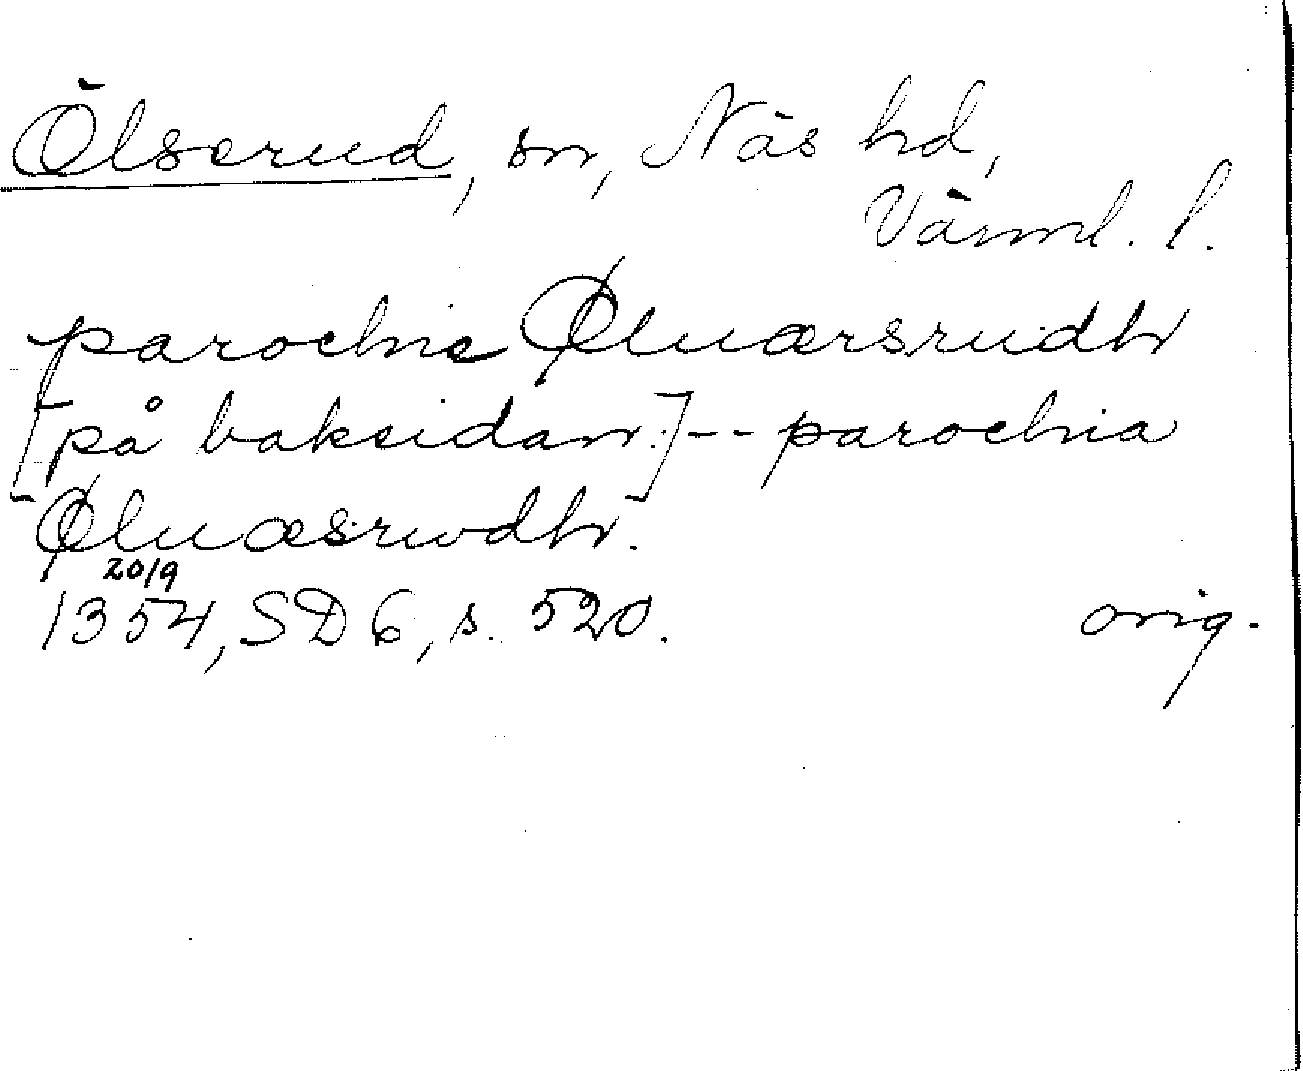 Ölserud, sn, Näs hd,
Värml. l.
parochie Øluærsrudh
[på baksidan:] -- parochia
Øluæsrwdh.
20/9
1354, SD 6, s. 520. orig.